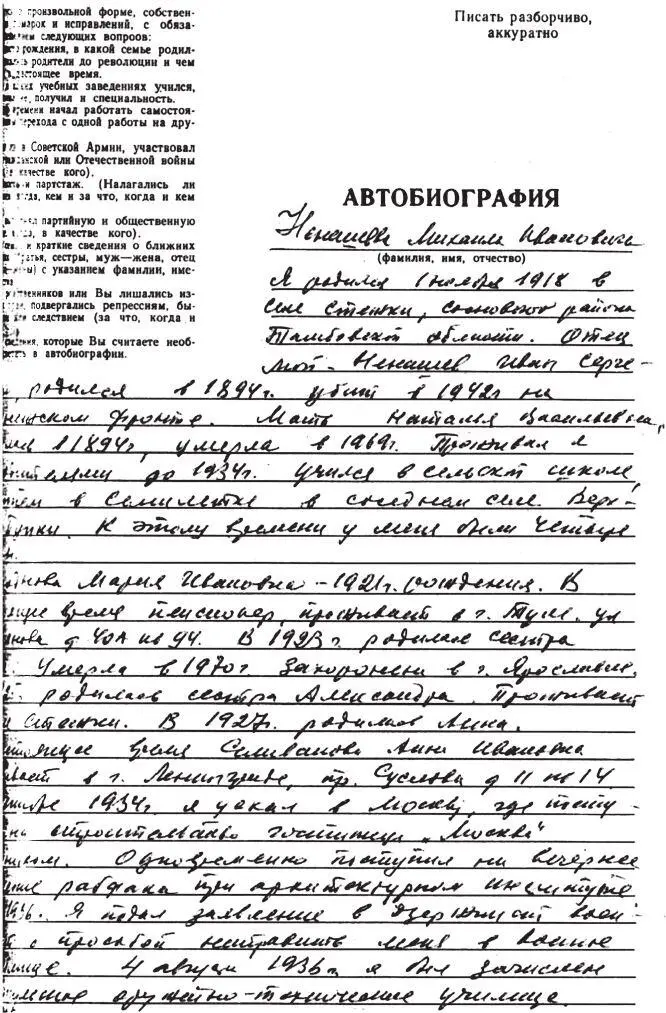 произвольной форме, собствен-
помарок и исправлений, с обяза-
следующих вопросов:
рождения, в какой семье родил-
родители до революции и чем
настоящее время.
учебных заведениях учился,
получил и специальность.
времени начал работать самостоя-
перехода с одной работы на дру-
в Советской Армии, участвовал
или Отечественной войны
качестве кого).
и партстаж. (Налагались ли
когда, кем и за что, когда и кем
партийную и общественную
в качестве кого).
и краткие сведения о ближних
братья, сестры, муж—жена, отец
) с указанием фамилии, име-
или Вы лишались из-
подвергались репрессиям, бы-
следствием (за что, когда и
которые Вы считаете необ-
в автобиографии.
Писать разборчиво,
аккуратно
АВТОБИОГРАФИЯ
Ненашева Михаила Ивановича
(фамилия, имя, отчество)
Я родился 1 ноября 1918 в
селе Стежки, Сосновского района
Тамбовской области. Отец
мой - Ненашев Иван Сергее-
родился в 1894г. убит в 1942г на
фронте. Мать Наталья Васильевна,
1894г, умерла в 1969г. Проживал я
до 1934г. учился в сельской школе,
в семилетке в соседнем селе Верх-
К этому времени у меня были четыре
Мария Ивановна - 1921г. рождения. В
время пенсионер, проживает в г. Туле. ул
д 40А кв 94. В 1923г. родилась сестра
Умерла в 1970г. Захоронена в г. Ярославле.
родилась сестра Александра. Проживает
Стежки. В 1927г. родилась Анна.
время Селиванова Анна Ивановна
в г. Ленинграде, пр. Суслова д 11 кв 14
1934г. я уехал в Москву, где посту-
на строительство гостиницы „Москва"
Одновременно поступил на вечернее
рабфака при архитектурном институте
Я подал заявление в Дзержинский воен-
с просьбой направить меня в военное
4 августа 1936г я был зачислен
оружейно-техническое училище.